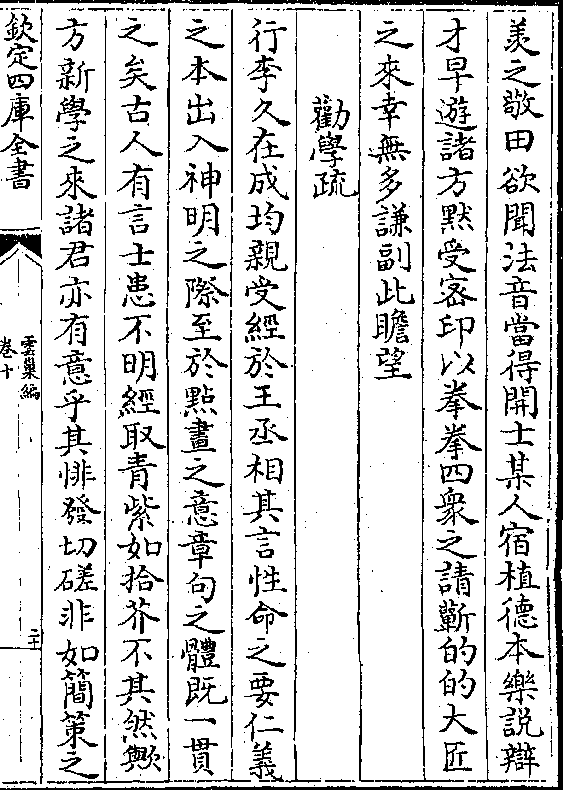 羡之敬田欲聞法音當得開士某人宿植德本樂説辯
才早遊諸方黙受宻印以拳拳四衆之請蘄的的大匠
之來幸無多謙副此瞻望
勸學疏
行李久在成均親受經於王丞相其言性命之要仁義
之本出入神明之際至於㸃畫之意章句之體既一貫
之矣古人有言士患不明經取青紫如拾芥不其然歟
方新學之來諸君亦有意乎其悱發切磋非如簡策之
欽定四庫全書
雲巢編
卷十
二十